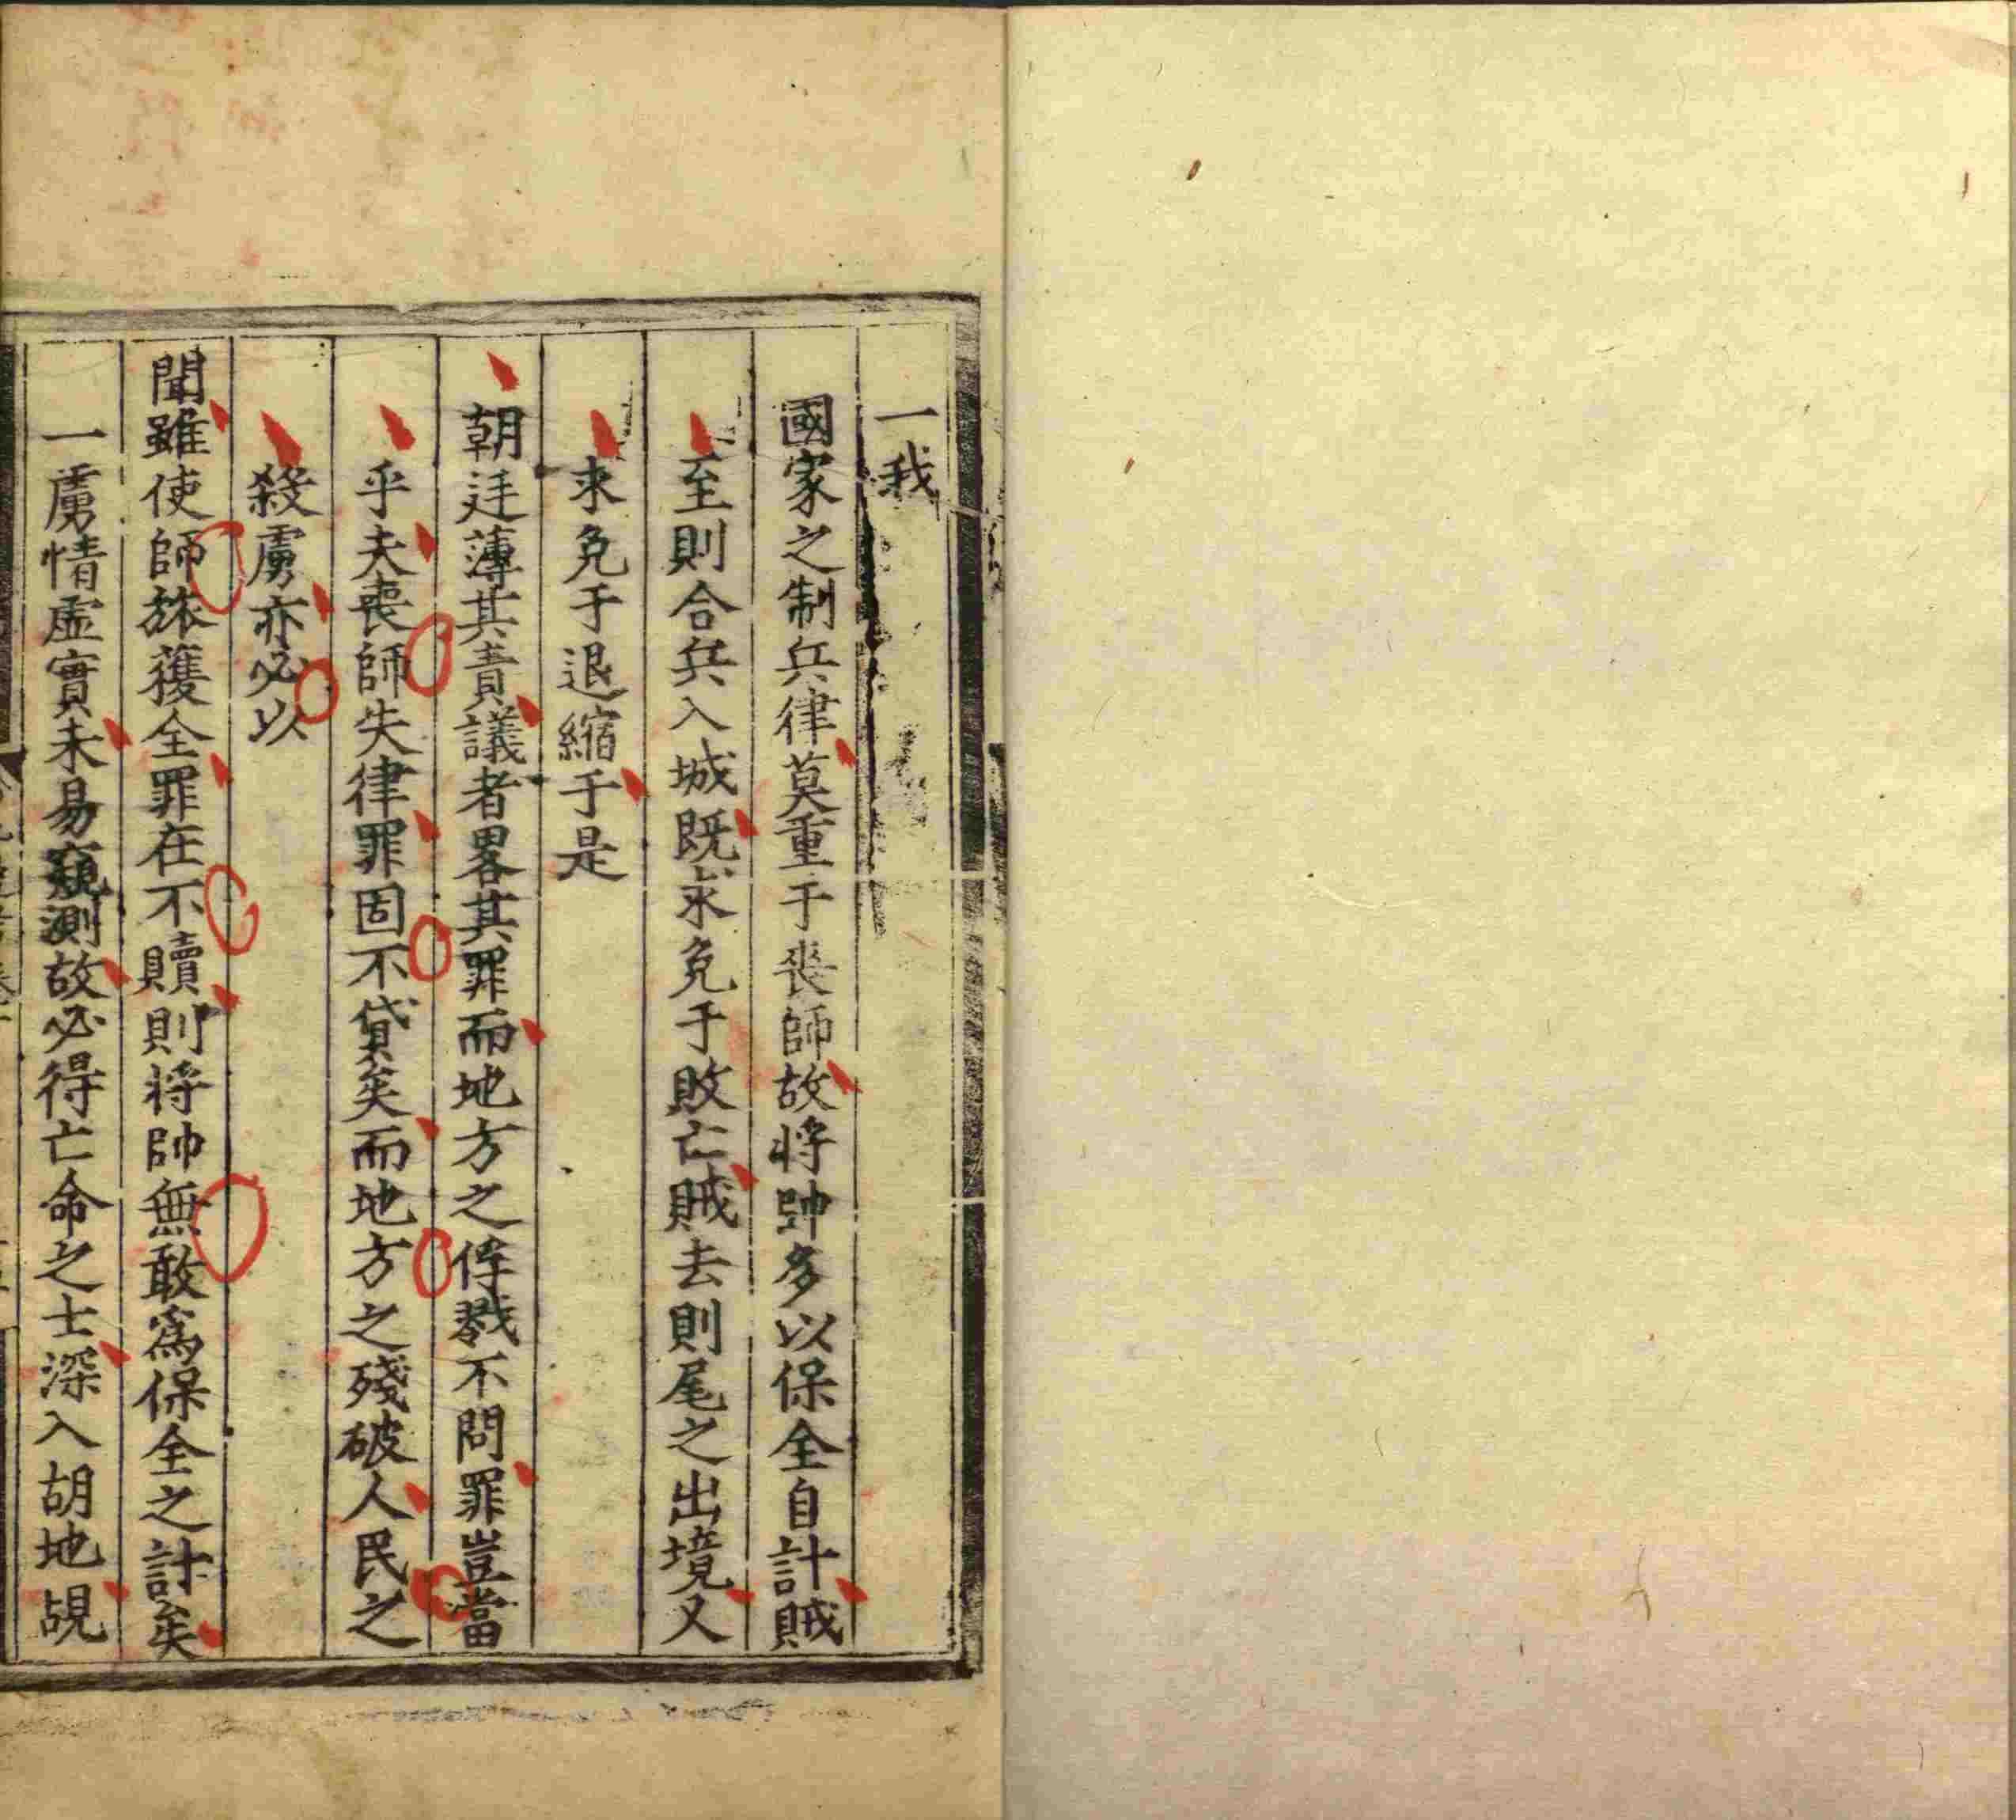 一我
國家之制兵律莫重于喪師故將帥多以保全自計賊
至則合兵入城既求免于敗亡賊去則尾之出境又
求免于退縮于是
朝廷薄其責議者畧其罪而地方之俘戮不問罪豈當
乎夫喪師失律罪固不貸矣而地方之殘破人民之
殺虜亦必以
聞雖使師旅獲全罪在不贖則將帥無敢爲保全之計矣
一虜情虛實未易窺測故必得亡命之士深入胡地覘